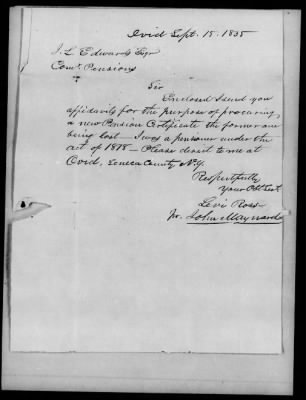 Ovid Sept. 15. 1835
J. L. Edwards Esqr
Comr. Pensions
Sir
Enclosed I send you
affidavits for the purpose of procuring
a new Pension Certificate the former one
being lost — I was a pensioner under the
act of 1818 — Please direct to me at
Ovid, Seneca County N.Y.
Respectfully
Your Obt. Svt.
Levi Ross
pr. John Maynard